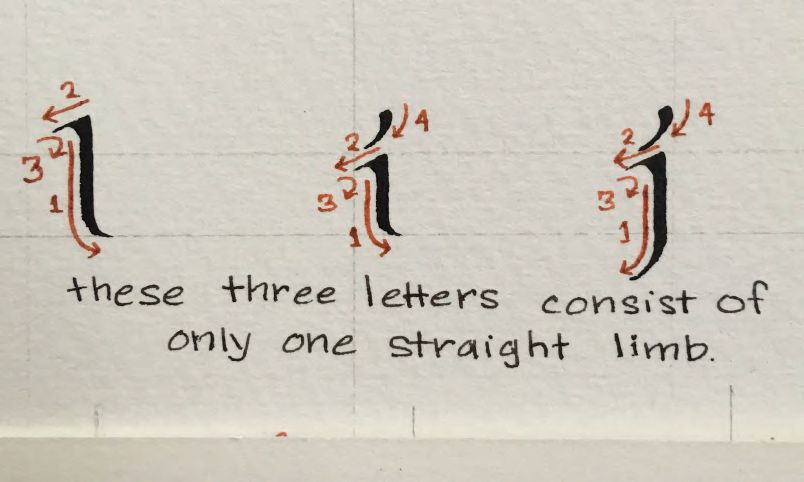 l i j
2 2 4 2 4
3 2 3 2 3 2
1 1 1
these three letters consist of
only one straight limb.